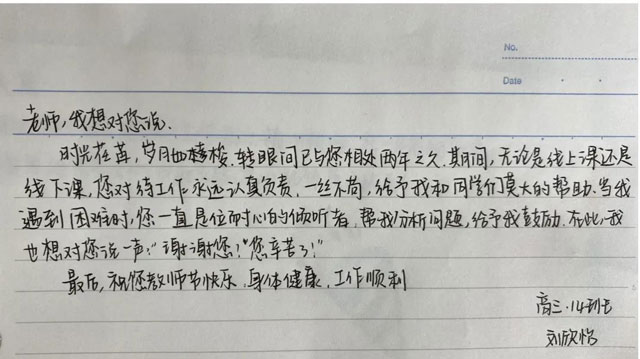 No.
Date
老师,我想对您说.
时光荏苒,岁月如梭.转眼间已与您相处两年之久.其间,无论是线上课还是
线下课,您对待工作永远认真负责,一丝不苟,给予我和同学们莫大的帮助.当我
遇到困难时,您一直是位耐心的倾听者,帮我分析问题,给予我鼓励.在此,我
也想对您说一声:"谢谢您!""您辛苦了!"
最后,祝您教师节快乐.身体健康,工作顺利
高三·14班
刘欣怡